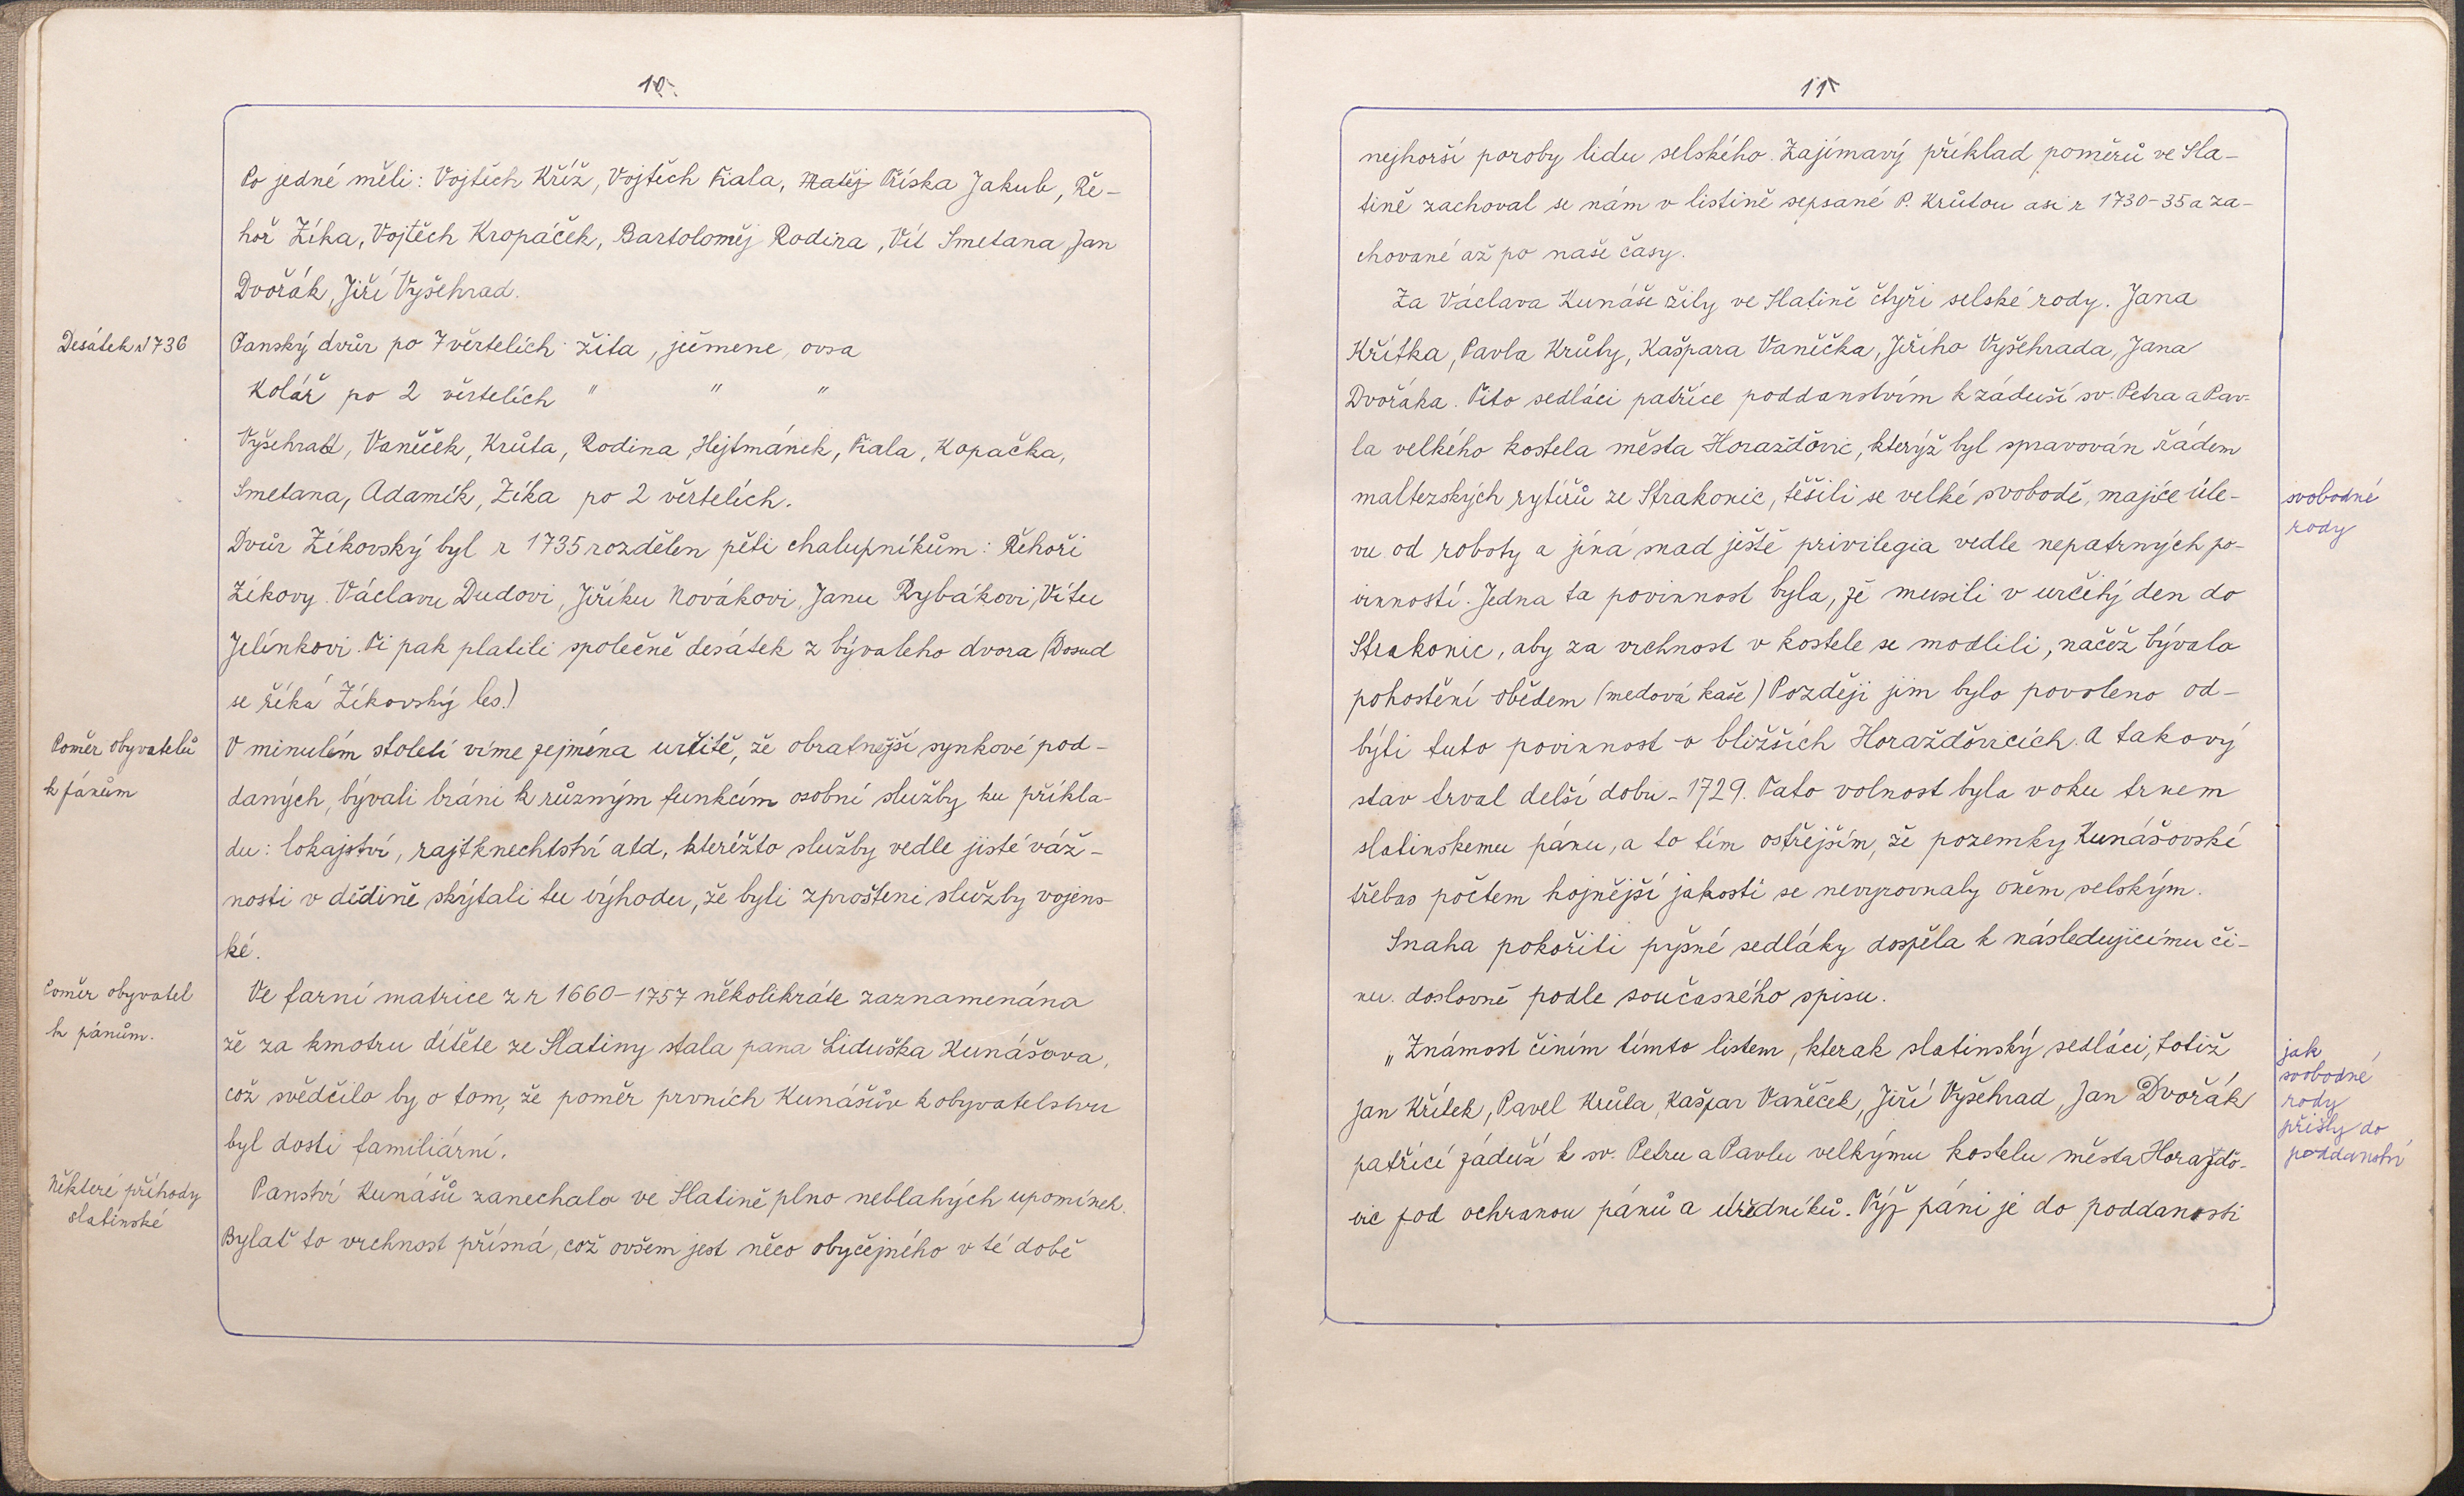 10.
Po jedné měli: Vojtěch Kříž, Vojtěch Fiala, Matěj Příska Jakub, Ře-
hoř Zíka, Vojtěch Kropáček, Bartoloměj Rodina, Vít Smetana, Jan
Dvořák, Jiří Vyšehrad.
Desátek r 1736
Panský dvůr po 7 věrtelích žita, ječmene, ovsa
Kolář po 2 věrtelích " " "
Vyšehrad, Vaněček, Krůta, Rodina, Hejtmánek, Fiala, Kopačka,
Smetana, Adamík, Zíka po 2 věrtelích.
Dvůr Zíkovský byl r 1735 rozdělen pěti chalupníkům: Řehoři
Zíkovy. Václavu Dudovi, Jiříku Novákovi, Janu Rybákovi, Vítu
Jelínkovi. Ti pak platili společně desátek z bývaleho dvora (Dosud
se říká Zíkovský les.)
Poměr obyvatelů
k pánům
V minulém století víme zejména určitě, že obratnější synkové pod-
daných, bývali bráni k různým funkcím osobní služby ku příkla-
du: lokajství, rajtknechtství atd, kterěžto služby vedle jisté váž-
nosti v dědině skýtali tu výhodu, že byli zproštěni služby vojens-
ké.
Poměr obyvatel
k pánům.
Ve farní matrice z r 1660-1757 několikráte zaznamenána
že za kmotru dítěte ze Slatiny stala pana Liduška Kunášova,
což svědčilo by o tom, že poměr prvních Kunášův k obyvatelstvu
byl dosti familiární.
Některé příhody
slatinské
Panství Kunášů zanechalo ve Slatině plno neblahých upomínek.
Bylať to vrchnost přísná, což ovšem jest něco obyčejného v té době
11
nejhorší poroby lidu selského. Zajímavý příklad poměrů ve Sla-
tině zachoval se nám v listině sepsané P. Krůtou asi r 1730-35 a za-
chované až po naše časy.
Za Václava Kunáše žily ve Slatině čtyři selské rody. Jana
Křítka, Pavla Krůty, Kašpara Vaněčka, Jiřího Vyšehrada, Jana
Dvořáka. Tito sedláci patříce poddanstvím k záduší sv. Petra a Pav-
la velkého kostela města Horažďovic, kterýž byl spravován řádem
maltezských rytířů ze Strakonic, těšili se velké svobodě, majíce úle-
svobodné
rody
vu od roboty a jiná snad ještě privilegia vedle nepatrných po-
vinností. Jedna ta povinnost byla, že musili v určitý den do
Strakonic, aby za vrchnost v kostele se modlili, načež bývalo
pohostění obědem (medová kaše) Později jim bylo povoleno od-
býti tuto povinnost v bližších Horažďovicích. A takový
stav trval delší dobu - 1729. Tato volnost byla v oku trnem
slatinskemu pánu, a to tím ostřejším, že pozemky Kunášovské
třebas počtem hojnější jakosti se nevyrovnaly oněm selským.
Snaha pokořiti pyšné sedláky dospěla k následujicímu či-
nu. doslovně podle současného spisu.
"Známost činím tímto listem, kterak slatinský sedláci, totiž
jak
svobodné
rody
přišly do
poddanství
Jan Křítek, Pavel Krůta, Kašpar Vaněček, Jiří Vyšehrad, Jan Dvořák
patřící záduž k sv. Petru a Pavlu velkýmu kostelu města Horaždo-
vic pod ochranou pánů a úředníků. Týž páni je do poddanosti